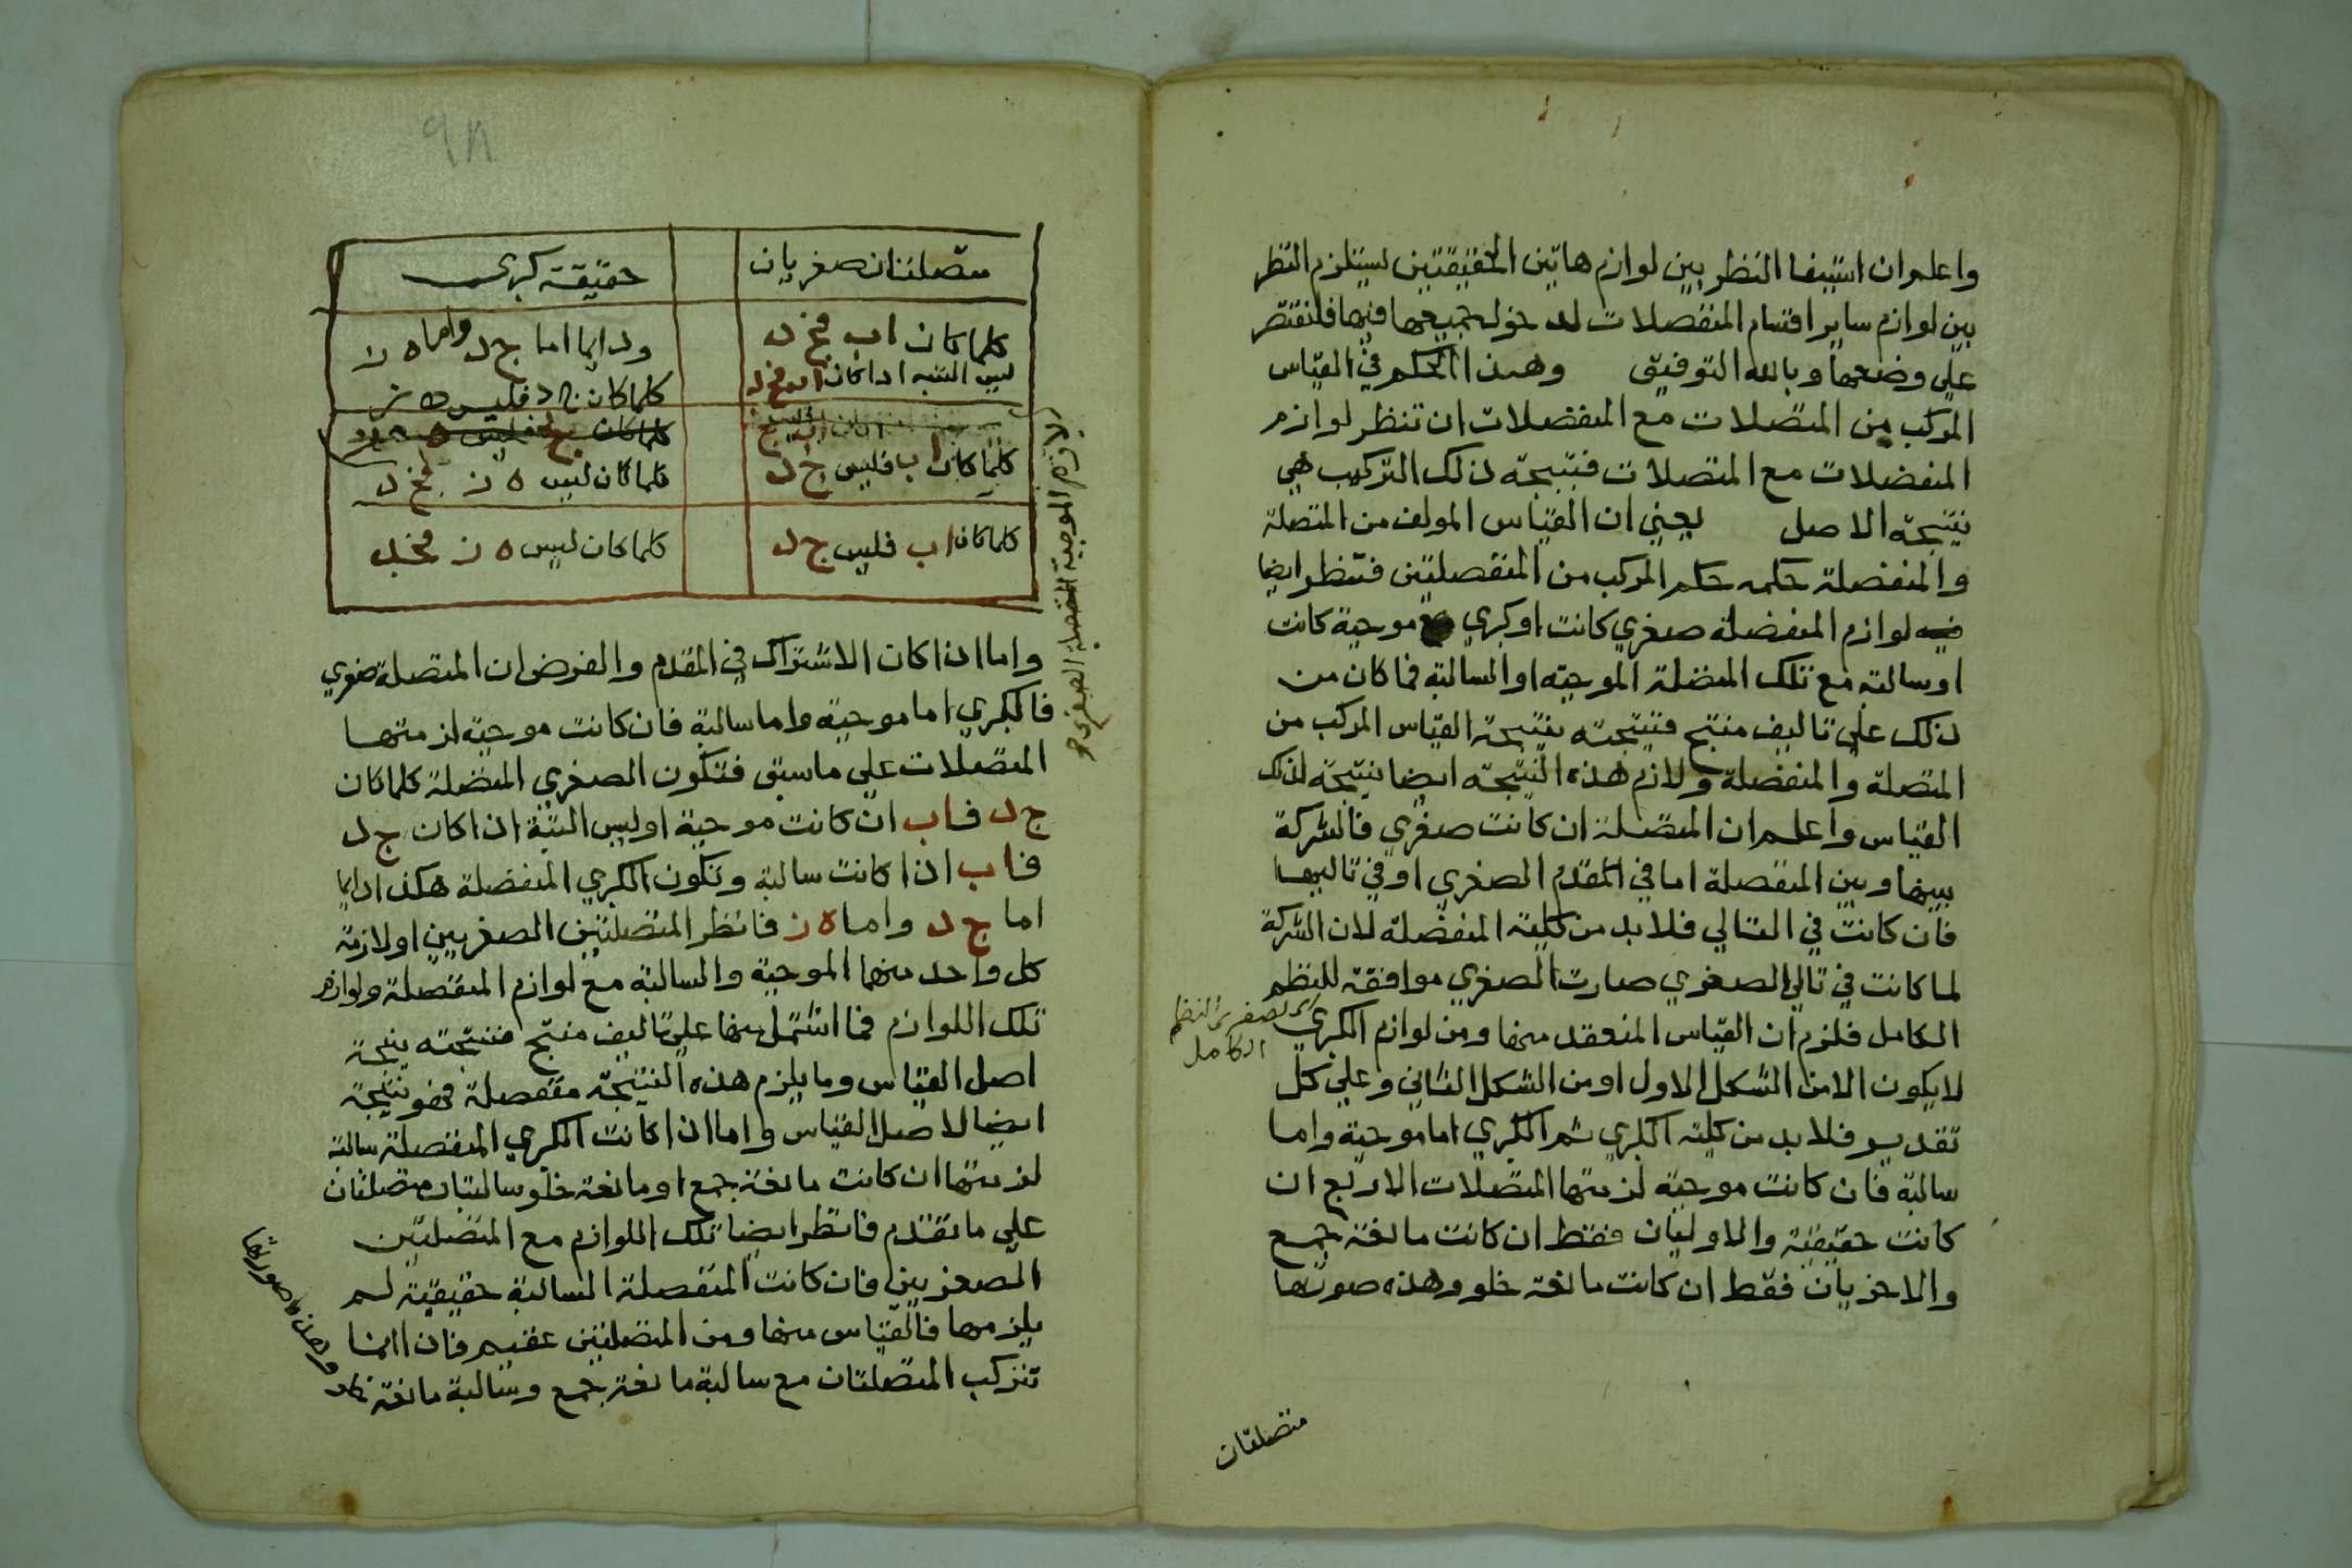 واعلم ان استيفا النظر بين لوازم هاتين الحقيقتين يستلزم النظر
بين لوازم ساير اقسام المنفصلات لدخول جميعها فيها فلنقتصر
على وضعها وبالله التوفيق وهذا الحكم في القياس
المركب من المتصلات مع المنفصلات ان تنظر لوازم
المنفصلات مع المتصلات فنتيجة ذلك التركيب هي
نتيجة الاصل يعني ان القياس المولف من المتصلة
والمنفصلة حكمه حكم المركب من المنفصلتين فتنظر ايضا
لوازم المنفصلة صغري كانت او كبري موجبة كانت
او سالبة مع تلك المتصلة الموجبة او السالبة فما كان من
ذلك على تاليف منتج فنتيجته نتيجة القياس المركب من
المتصلة والمنفصلة ولازم هذه النتيجة ايضا نتيجة لذلك
القياس واعلم ان المتصلة ان كانت صغري فالشركة
بينها وبين المنفصلة اما في المقدم الصغري او في تاليها
فان كانت في التالي فلا بد من كلية المنفصلة لان الشركة
لما كانت في تالي الصغري صارت الصغري موافقة للنظم
الكامل فلزم ان القياس المنعقد منها ومن لوازم الكبري
لا يكون الا من الشكل الاول او من الشكل الثاني وعلي كل
تقدير فلا بد من كلية الكبري ثم الكبري اما موجبة واما
سالبة فان كانت موجبة لزمتها المتصلات الاربع ان
كانت حقيقية والاوليان فقط ان كانت مانعة جمع
والاخريان فقط ان كانت مانعة خلو وهذه صورتها
الكامل
متصلتان
٩٨
متصلتان صغريان حقيقة كبرى
كلما كان اب فج د ودايما اما ج د واما ه ز
ليس البتة اذا كان اب فج د كلما كان ج د فليس ه ز
كلما كان اب فليس ج د كلما كان ليس ه ز فج د
كلما كان اب فليس ج د كلما كان ليس ه ز فج د
لازم الموجبة المتصلة الصغرى
واما اذا كان الاشتراك في المقدم والفرض ان المتصلة صغري
فالكبري اما موجبة واما سالبة فان كانت موجبة لزمتها
المتصلات علي ما سبق فتكون الصغري المتصلة كلما كان
ج د فاب ان كانت موجبة او ليس البتة اذا كان ج د
فاب اذا كانت سالبة وتكون الكبري المنفصلة هكذا دايما
اما ج د واما ه ز فانظر المتصلتين الصغريين او لازمة
كل واحد منهما الموجبة والسالبة مع لوازم المنفصلة ولوازم
تلك اللوازم فما اشتمل منها علي تاليف منتج فنتيجته نتيجة
اصل القياس وما يلزم هذه النتيجة منفصلة فهو نتيجة
ايضا لاصل القياس واما اذا كانت الكبري المنفصلة سالبة
لزمتها ان كانت مانعة جمع او مانعة خلو سالبتان متصلتان
علي ما تقدم فانظر ايضا تلك اللوازم مع المتصلتين
الصغريين فان كانت المنفصلة السالبة حقيقية لم
يلزمها فالقياس منها ومن المتصلتين عقيم فان اانما
تتركب المتصلتان مع سالبة مانعة جمع وسالبة مانعة
وهذه صورتها